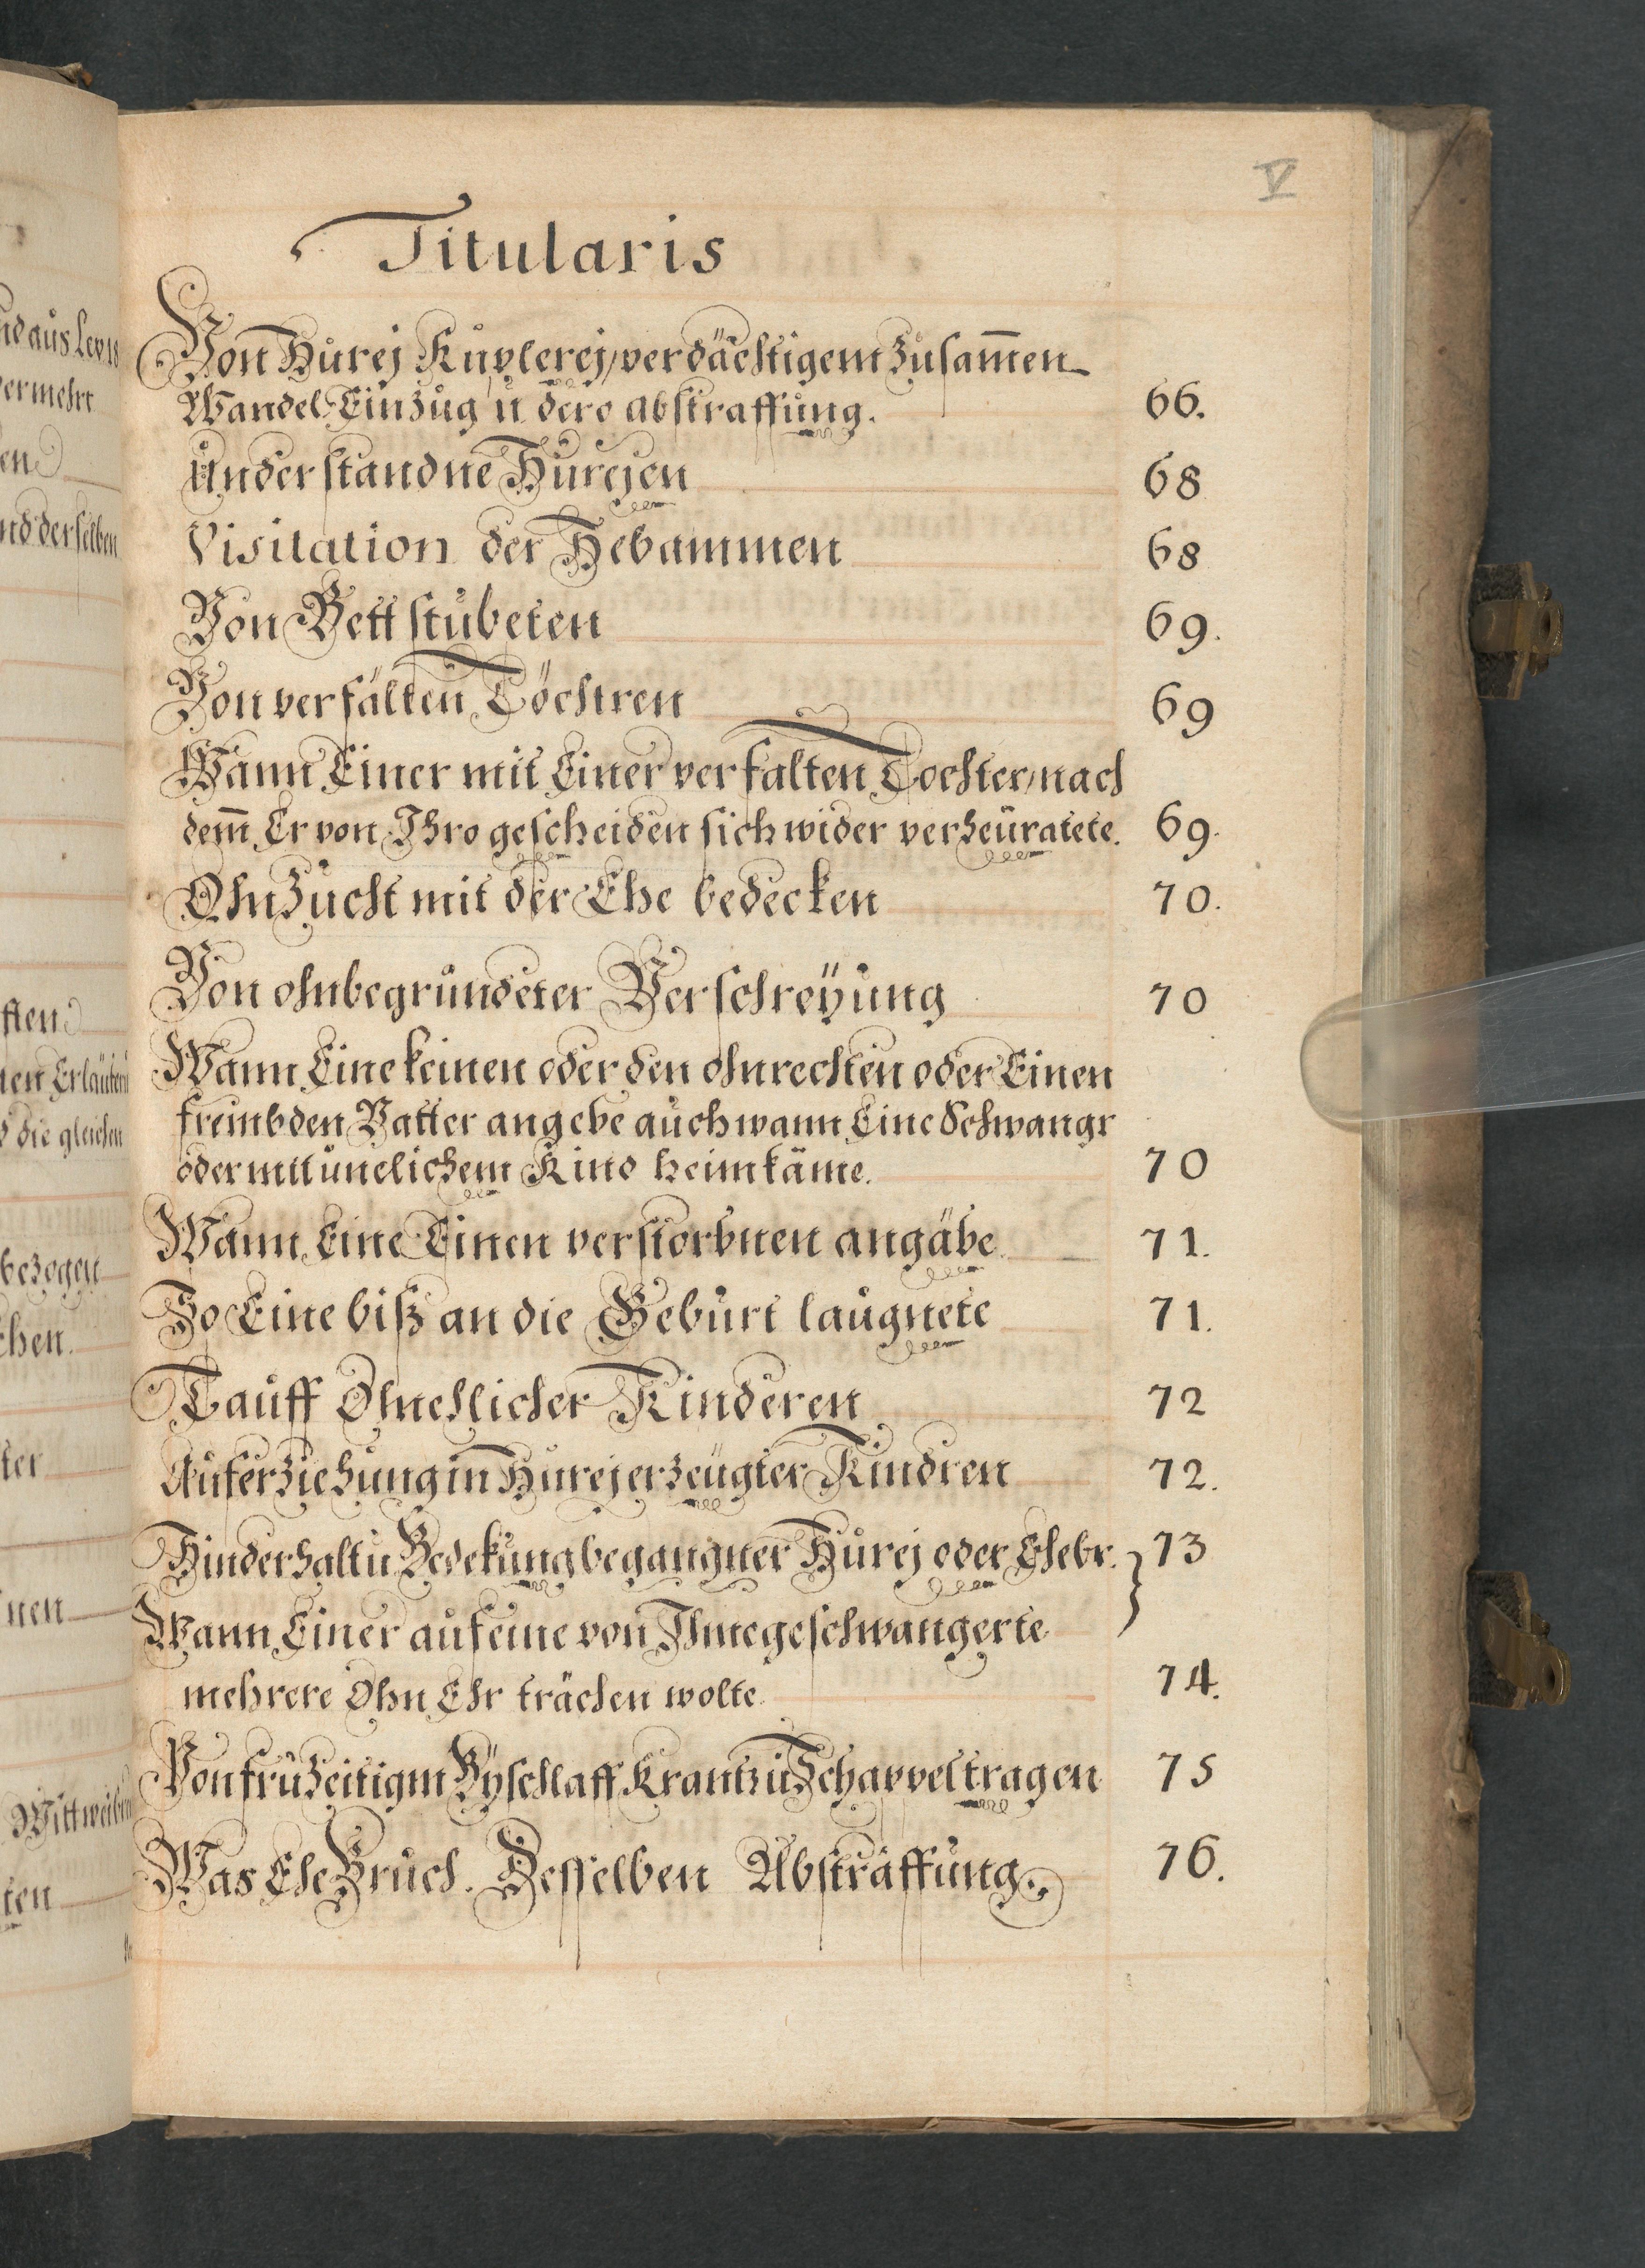 V
Titularis
Von Hurej Kuplerej, verdächtigem Zusam̅en
Wandel Einzug u. dero abstraffung. 66.
Understandne Hurejen 68
Visitation der Hebammen 68
Von Bettstubeten 69.
Von verfälten Töchtren 69
Wann Einer mit Einer verfälten Tochter, nach
dem̅ Er von Ihro gescheiden sich wider verheüratete. 69.
Ohnzucht mit der Ehe bedecken 70.
Von ohnbegründeter Verschreÿung 70
Wann Eine keinen oder den ohnrechten oder Einen
frembden Vatter angebe auch wann Eine Schwangr
oder mit unelichem Kind heimkäme. 70
Wann Eine Einen verstorbnen angäbe 71.
So Eine biß an die Geburt laugnete 71.
Tauff Ohnehlicher Kinderen 72
Auferziehung in Hurej erzeugter Kindren 72.
Hinderhalt u. Bedekung begangner Hurej oder Ehebr. } 73
Wann Einer auf eine von Ihme geschwangerte
mehrere Ohn Ehr trächen wolte. 74.
Von fruzeitigm Byschlaff Krantz u. Schappel tragen 75
Was Ehe Bruch. Desselben Abstraffung. 76.
nd aus Lev 18
vermehrt
en
nd derselben
ften
nen Erläuter
d die gleichen
bezogen
chen.
ter
nen
Wittweiben
ten